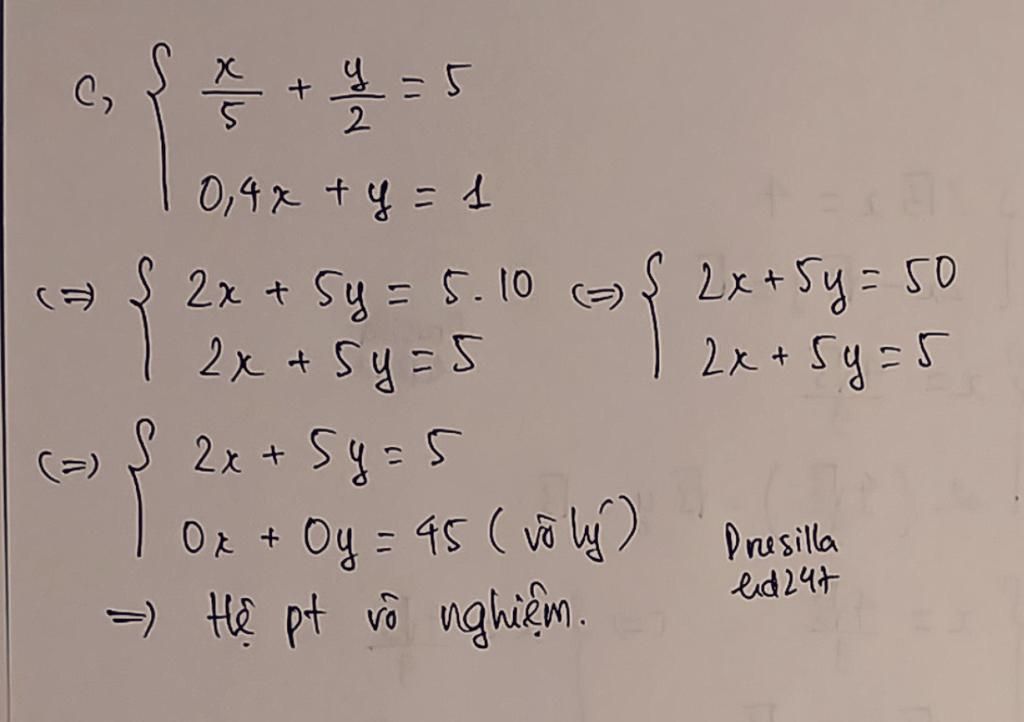 c, { x/5 + y/2 = 5
0,4x + y = 1
(=) { 2x + 5y = 5.10 (=) { 2x + 5y = 50
2x + 5y = 5 2x + 5y = 5
(=) { 2x + 5y = 5
0x + 0y = 45 (vô lý)
=) Hệ pt vô nghiệm.
Drusilla